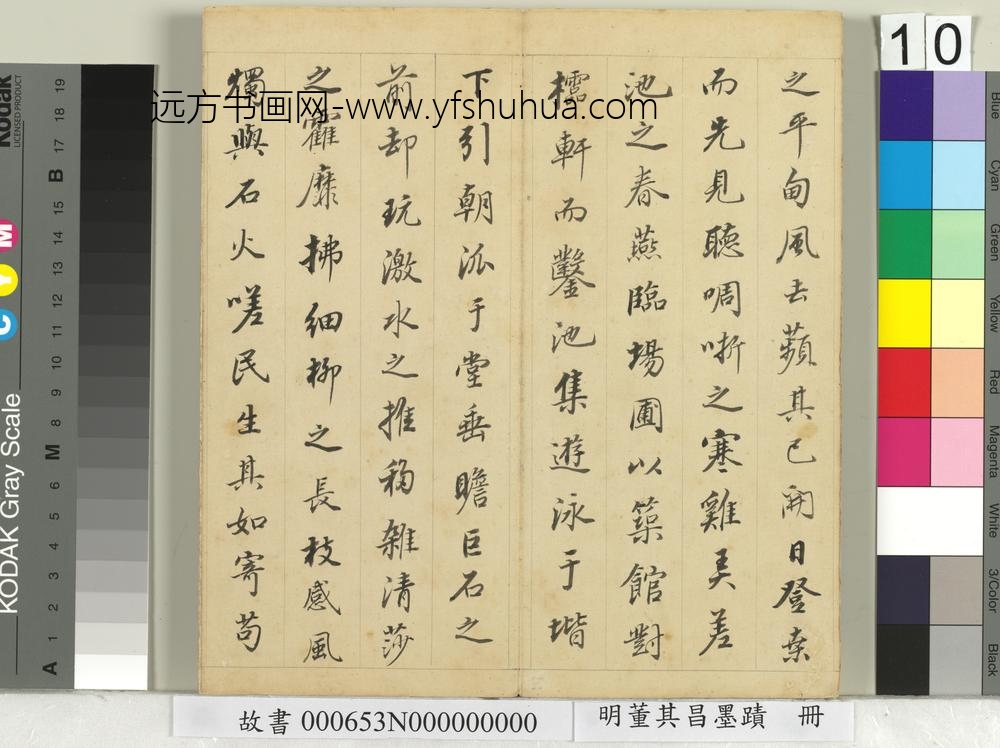 之平甸風去蘋其已開日登桑
而先見聽啁哳之寒雞美差
池之春燕臨場圃以築館對
櫺軒而鑿池集遊泳于堦
下引朝派于堂垂瞻巨石之
前却玩激水之推移雜清莎
之霍靡拂細柳之長枝感風
燭與石火嗟民生其如寄苟
远方书画网-www.yfshuhua.com
10
Kodak
LICENSED PRODUCT
KODAK Gray Scale
C Y M
A 1 2 3 4 5 6 M 8 9 10 11 12 13 14 15 B 17 18 19
Blue
Cyan
Green
Yellow
Red
Magenta
White
3/Color
Black
故書 000653N000000000
明董其昌墨蹟 冊